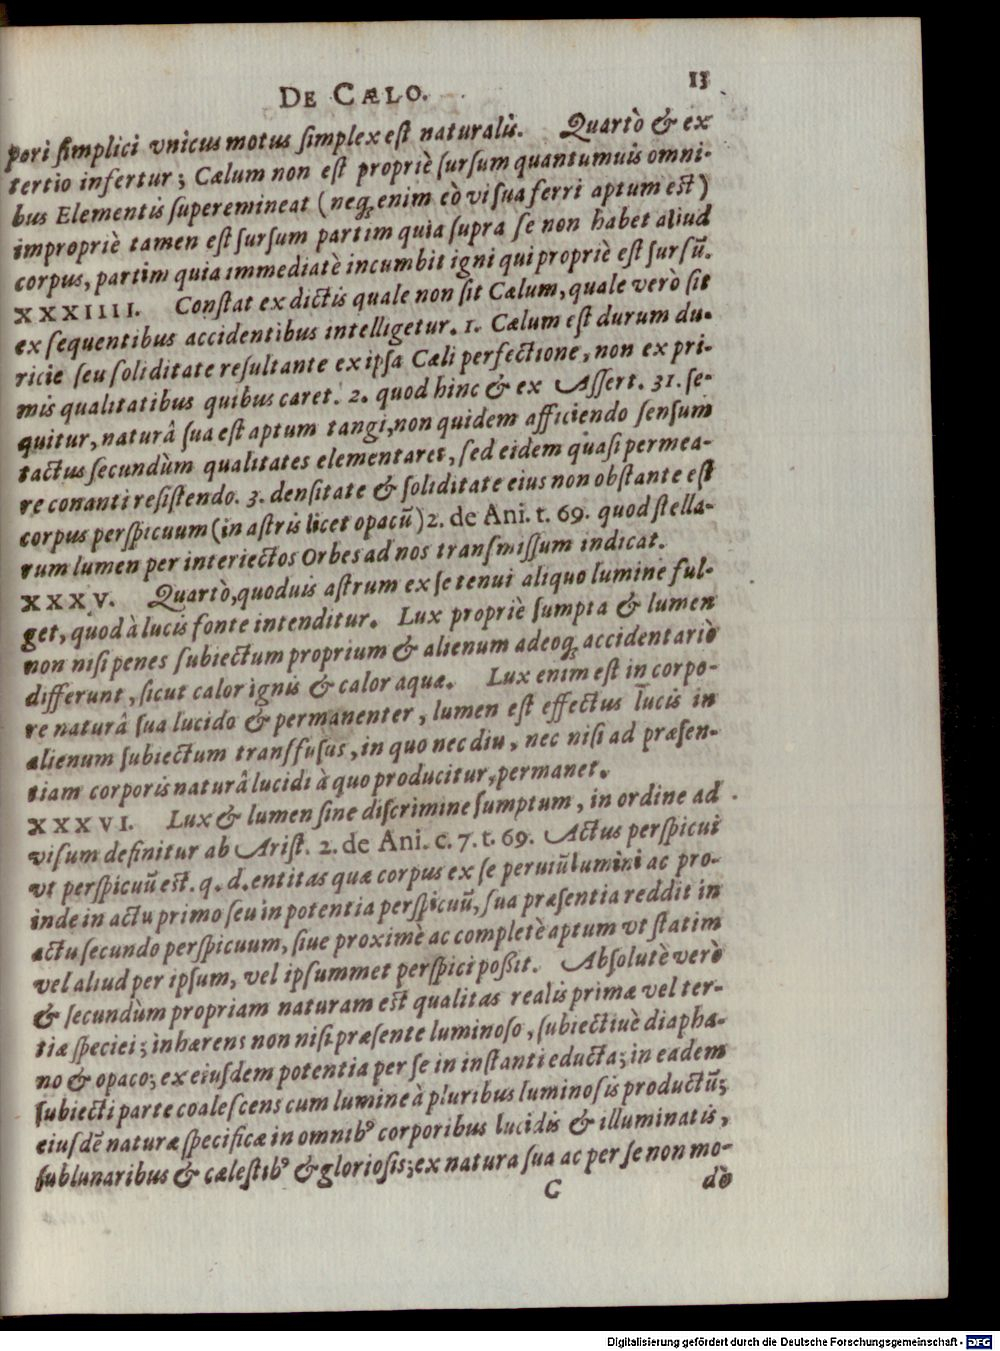 DE CÆLO. 13
pori ſimplici vnicus motus ſimplex eſt naturalis. Quartò & ex
tertio infertur; Cælum non eſt propriè ſurſum quantumuis omni-
bus Elementis ſuperemineat (neq; enim eò vi ſua ferri aptum est)
impropriè tamen eſt ſurſum partim quia ſupra ſe non habet aliud
corpus, partim quia immediatè incumbit igni qui propriè eſt ſurſū.
XXXIIII. Conſtat ex dictis quale non ſit Cælum, quale verò ſit
ex ſequentibus accidentibus intelligetur. 1. Cælum eſt durum du-
ricie ſeu ſoliditate reſultante ex ipſa Cæli perfectione, non ex pri-
mis qualitatibus quibus caret. 2. quod hinc & ex Aſſert. 31. ſe-
quitur, naturâ ſua eſt aptum tangi, non quidem afficiendo ſenſum
tactus ſecundùm qualitates elementares, ſed eidem quaſi permea-
re conanti reſiſtendo. 3. denſitate & ſoliditate eius non obſtante eſt
corpus perſpicuum (in aſtris licet opacū) 2. de Ani. t. 69. quod ſtella-
rum lumen per interiectos Orbes ad nos tranſmiſſum indicat.
XXXV. Quartò, quoduis aſtrum ex ſe tenui aliquo lumine ful-
get, quod à lucis fonte intenditur. Lux propriè ſumpta & lumen
non niſi penes ſubiectum proprium & alienum adeoq; accidentariò
differunt, ſicut calor ignis & calor aquæ. Lux enim eſt in corpo-
re naturâ ſua lucido & permanenter, lumen eſt effectus lucis in
alienum ſubiectum tranſfuſus, in quo nec diu, nec niſi ad præſen-
tiam corporis naturâ lucidi à quo producitur, permanet.
XXXVI. Lux & lumen ſine diſcrimine ſumptum, in ordine ad
viſum definitur ab Ariſt. 2. de Ani. c. 7. t. 69. Actus perſpicui
vt perſpicuū est. q. d. entitas quæ corpus ex ſe peruiū lumini ac pro-
inde in actu primo ſeu in potentia perſpicuū, ſua præſentia reddit in
actu ſecundo perſpicuum, ſiue proximè ac completè aptum vt ſtatim
vel aliud per ipſum, vel ipſummet perſpici poßit. Abſolutè verò
& ſecundùm propriam naturam est qualitas realis primæ vel ter-
tiæ ſpeciei; inhærens non niſi præſente luminoſo, ſubiectiuè diapha-
no & opaco; ex eiuſdem potentia per ſe in inſtanti educta; in eadem
ſubiecti parte coaleſcens cum lumine à pluribus luminoſis productū;
eiuſdē naturæ ſpecificæ in omnibꝰ corporibus lucidis & illuminatis,
ſublunaribus & cæleſtibꝰ & glorioſis; ex natura ſua ac per ſe non mo-
C dò
Digitalisierung gefördert durch die Deutsche Forschungsgemeinschaft - DFG